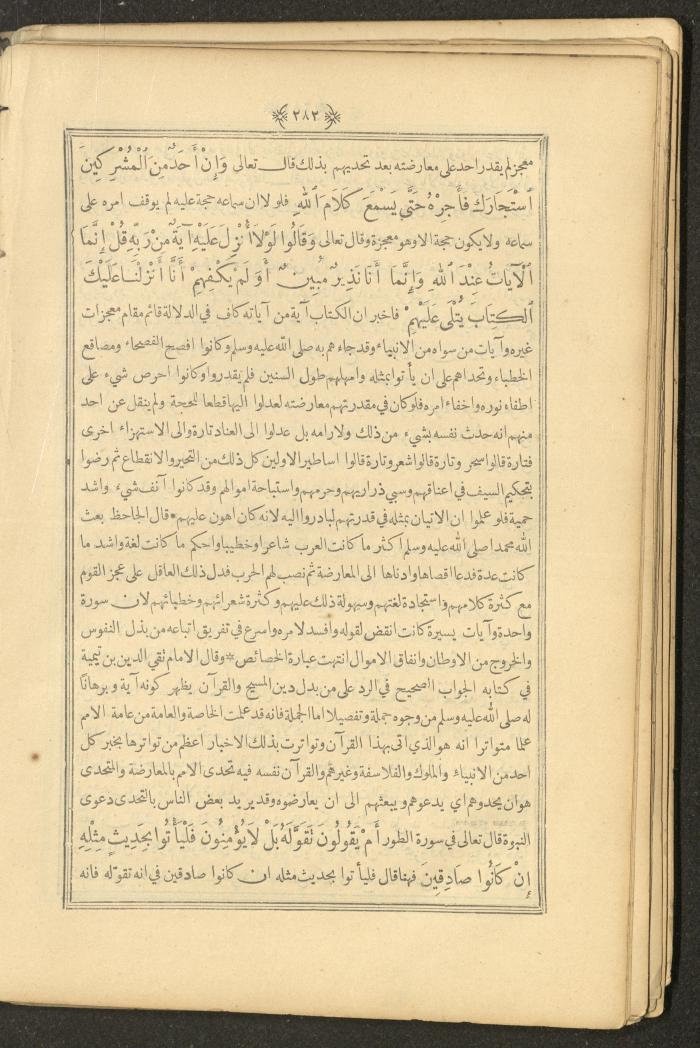 ﴿٢٨٢﴾
معجز لم يقدر احد على معارضته بعد تحديهم بذلك قال تعالى وَإِنْ أَحَدٌ مِنَ الْمُشْرِكِينَ
اسْتَجَارَكَ فَأَجِرْهُ حَتَّى يَسْمَعَ كَلَامَ اللهِ فلولا ان سماعه حجة عليه لم يوقف امره على
سماعه ولا يكون حجة الا وهو معجزة وقال تعالى وَقَالُوا لَوْلَا أُنْزِلَ عَلَيْهِ آيَةٌ مِنْ رَبِّهِ قُلْ إِنَّمَا
الْآيَاتُ عِنْدَ اللهِ وَإِنَّمَا أَنَا نَذِيرٌ مُبِينٌ أَوَلَمْ يَكْفِهِمْ أَنَّا أَنْزَلْنَا عَلَيْكَ
الكِتَابَ يُتْلَى عَلَيْهِمْ فاخبر ان الكتاب آية من آياته كاف في الدلالة قائم مقام معجزات
غيره وآيات من سواه من الانبياء وقد جاءهم به صلى الله عليه وسلم وكانوا افصح الفصحاء ومصاقع
الخطباء وتحداهم على ان يأتوا بمثله وامهلهم طول السنين فلم يقدروا وكانوا احرص شيء على
اطفاء نوره واخفاء امره فلو كان في مقدرتهم معارضته لعدلوا اليها قطعا للحجة ولم ينقل عن احد
منهم انه حدث نفسه بشيء من ذلك ولا رامه بل عدلوا الى العناد تارة والى الاستهزاء اخرى
فتارة قالوا سحر وتارة قالوا شعر وتارة قالوا اساطير الاولين كل ذلك من التحير والانقطاع ثم رضوا
بتحكيم السيف في اعناقهم وسبي ذراريهم وحرمهم واستباحة اموالهم وقد كانوا آنف شيء واشد
حمية فلو علموا ان الاتيان بمثله في قدرتهم لبادروا اليه لانه كان اهون عليهم • قال الجاحظ بعث
الله محمدا صلى الله عليه وسلم اكثر ما كانت العرب شاعرا وخطيبا واحكم ما كانت لغة واشد ما
كانت عدة فدعا اقصاها وادناها الى المعارضة ثم نصب لهم الحرب فدل ذلك العاقل على عجز القوم
مع كثرة كلامهم واستجادة لغتهم وسهولة ذلك عليهم وكثرة شعرائهم وخطبائهم لان سورة
واحدة وآيات يسيرة كانت انقض لقوله وافسد لامره واسرع في تفريق اتباعه من بذل النفوس
والخروج من الاوطان وانفاق الاموال انتهت عبارة الخصائص * وقال الامام تقي الدين بن تيمية
في كتابه الجواب الصحيح في الرد على من بدل دين المسيح والقرآن يظهر كونه آية وبرهانا
له صلى الله عليه وسلم من وجوه جملة وتفصيلا اما الجملة فانه قد علمت الخاصة والعامة من عامة الامم
علما متواترا انه هو الذي اتى بهذا القرآن وتواترت بذلك الاخبار اعظم من تواترها بخبر كل
احد من الانبياء والملوك والفلاسفة وغيرهم والقرآن نفسه فيه تحدى الامم بالمعارضة والتحدى
هو ان يحدوهم اي يدعوهم ويبعثهم الى ان يعارضوه وقد يريد بعض الناس بالتحدى دعوى
النبوة قال تعالى في سورة الطور أَمْ يَقُولُونَ تَقَوَّلَهُ بَلْ لَا يُؤْمِنُونَ فَلْيَأْتُوا بِحَدِيثٍ مِثْلِهِ
إِنْ كَانُوا صَادِقِينَ فهنا قال فليأتوا بحديث مثله ان كانوا صادقين في انه تقوّله فانه